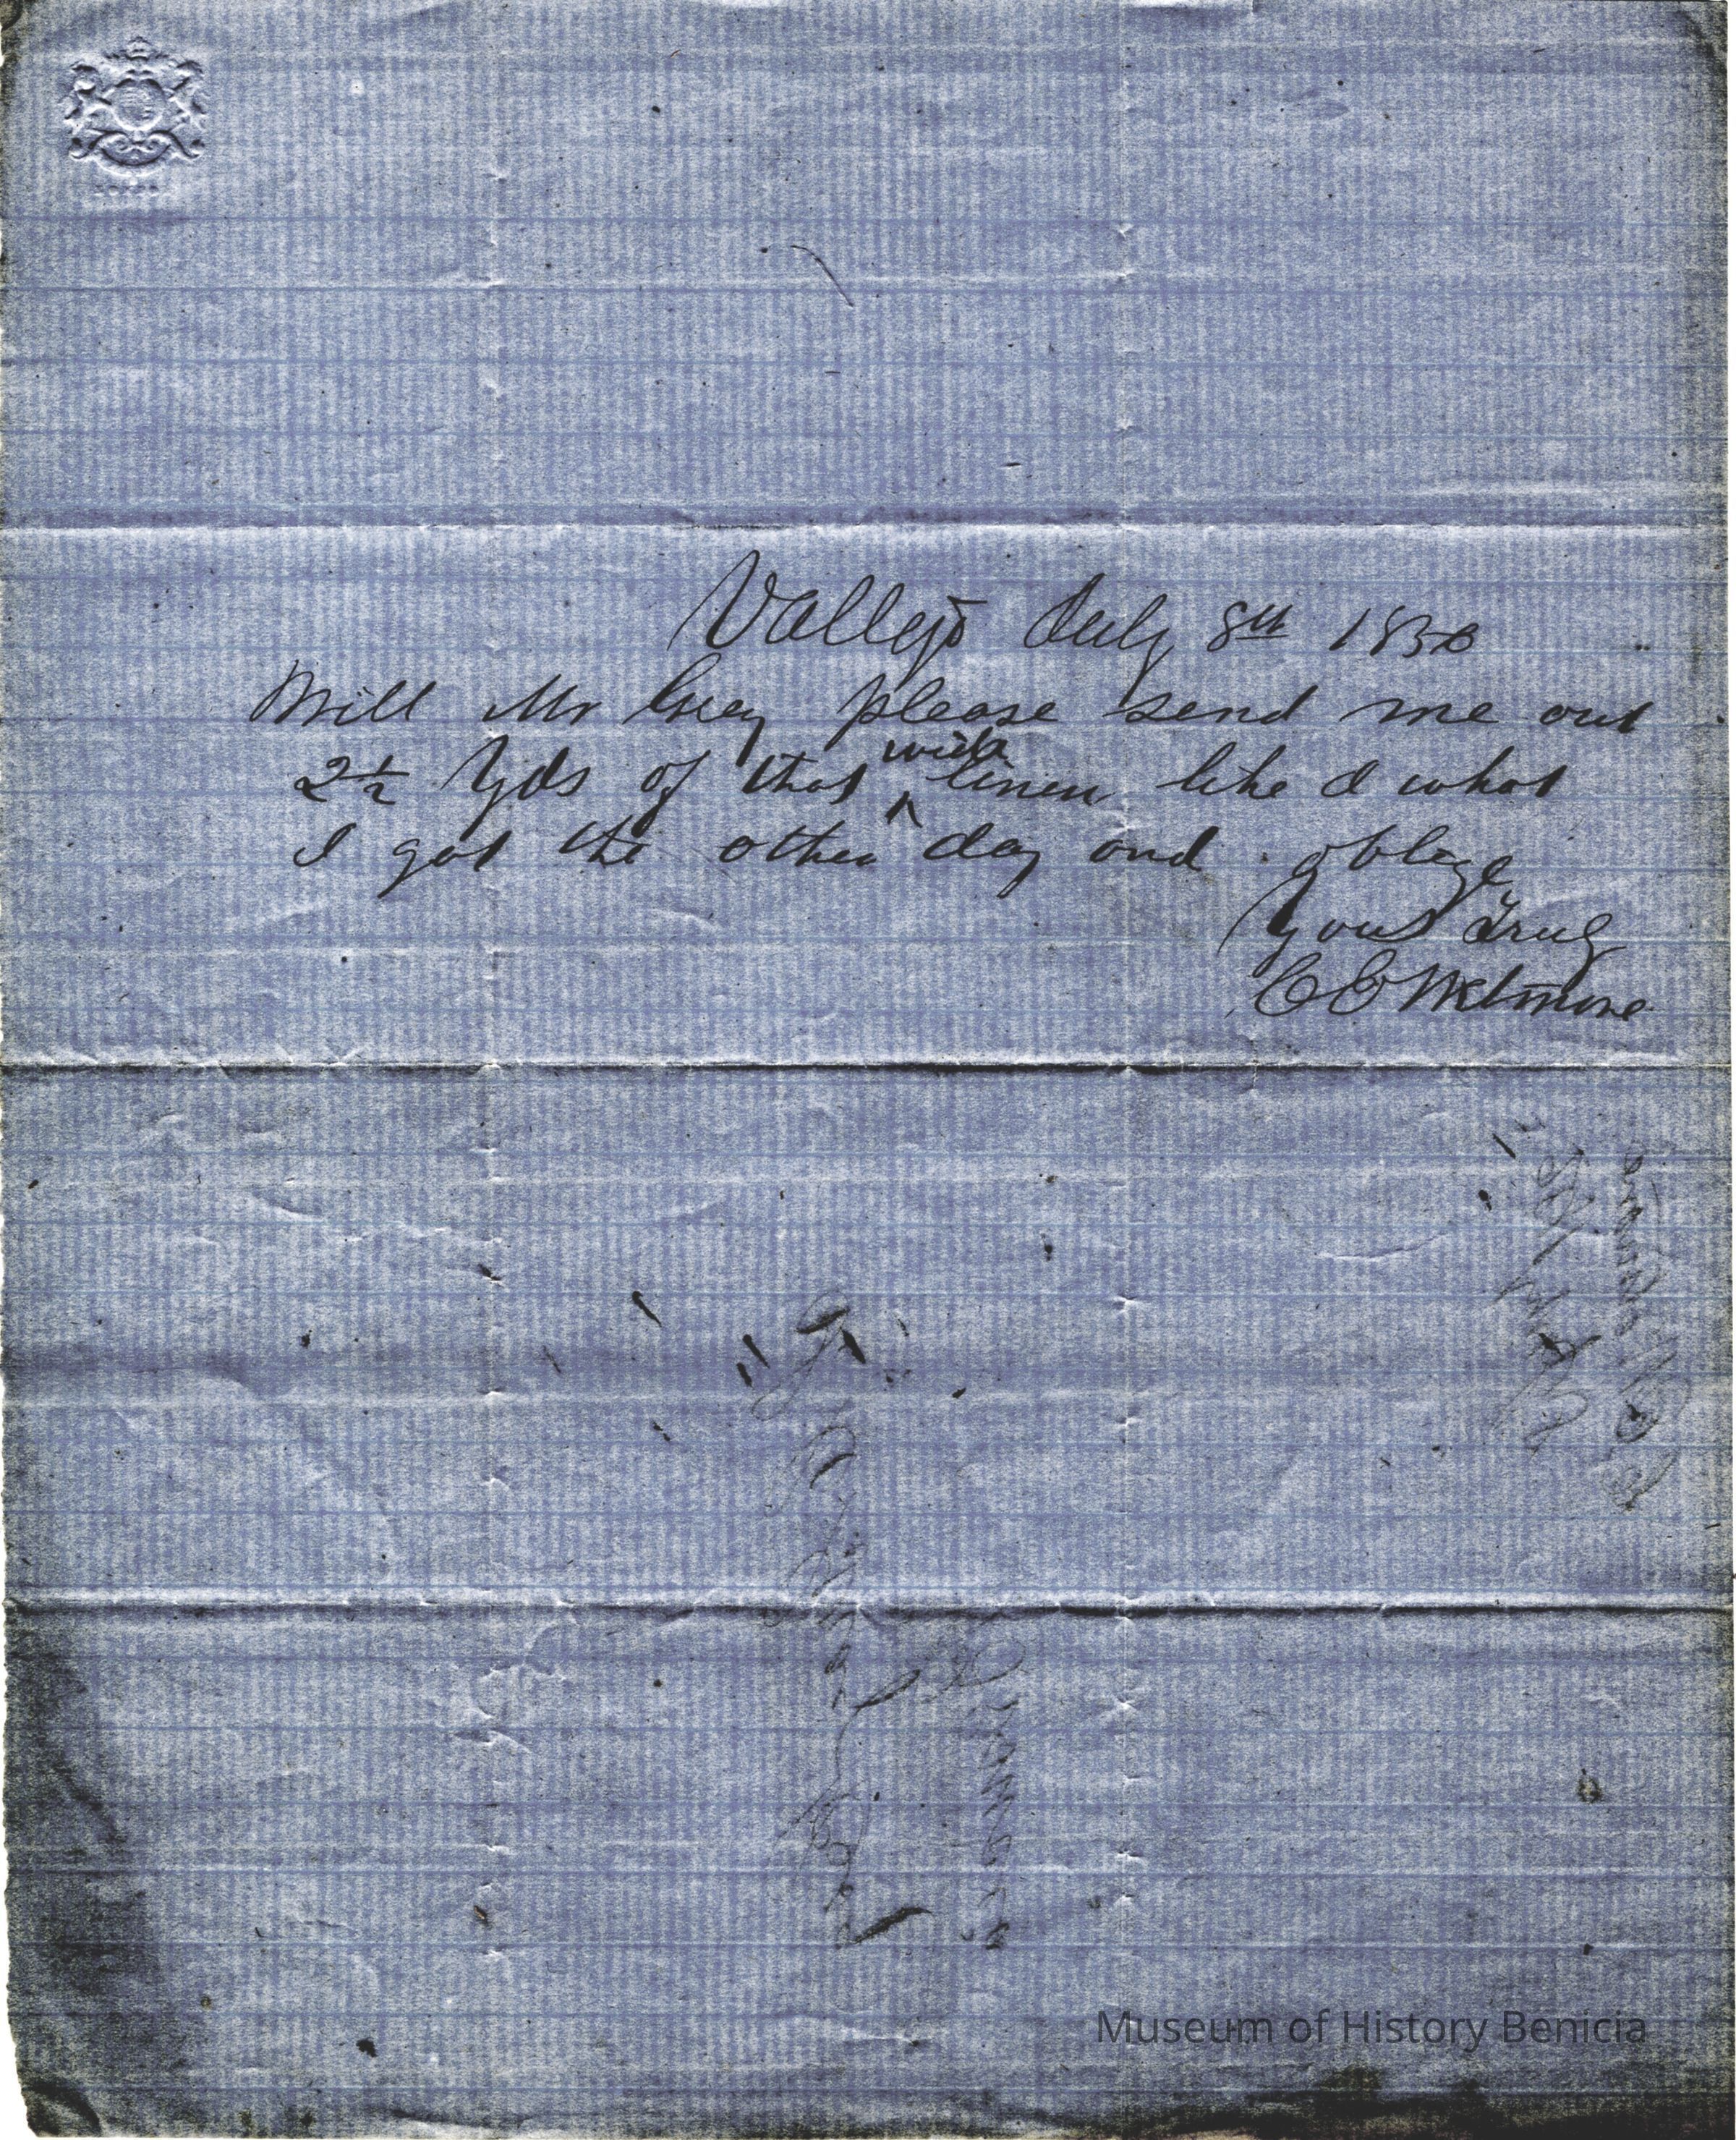 Vallejo July 8th 1850
Will Mr Grey please send me out
2½ Yds of that wide linen like d what
I got the other day and oblige
Yours Truly
C C Wetmore
Museum of History Benicia